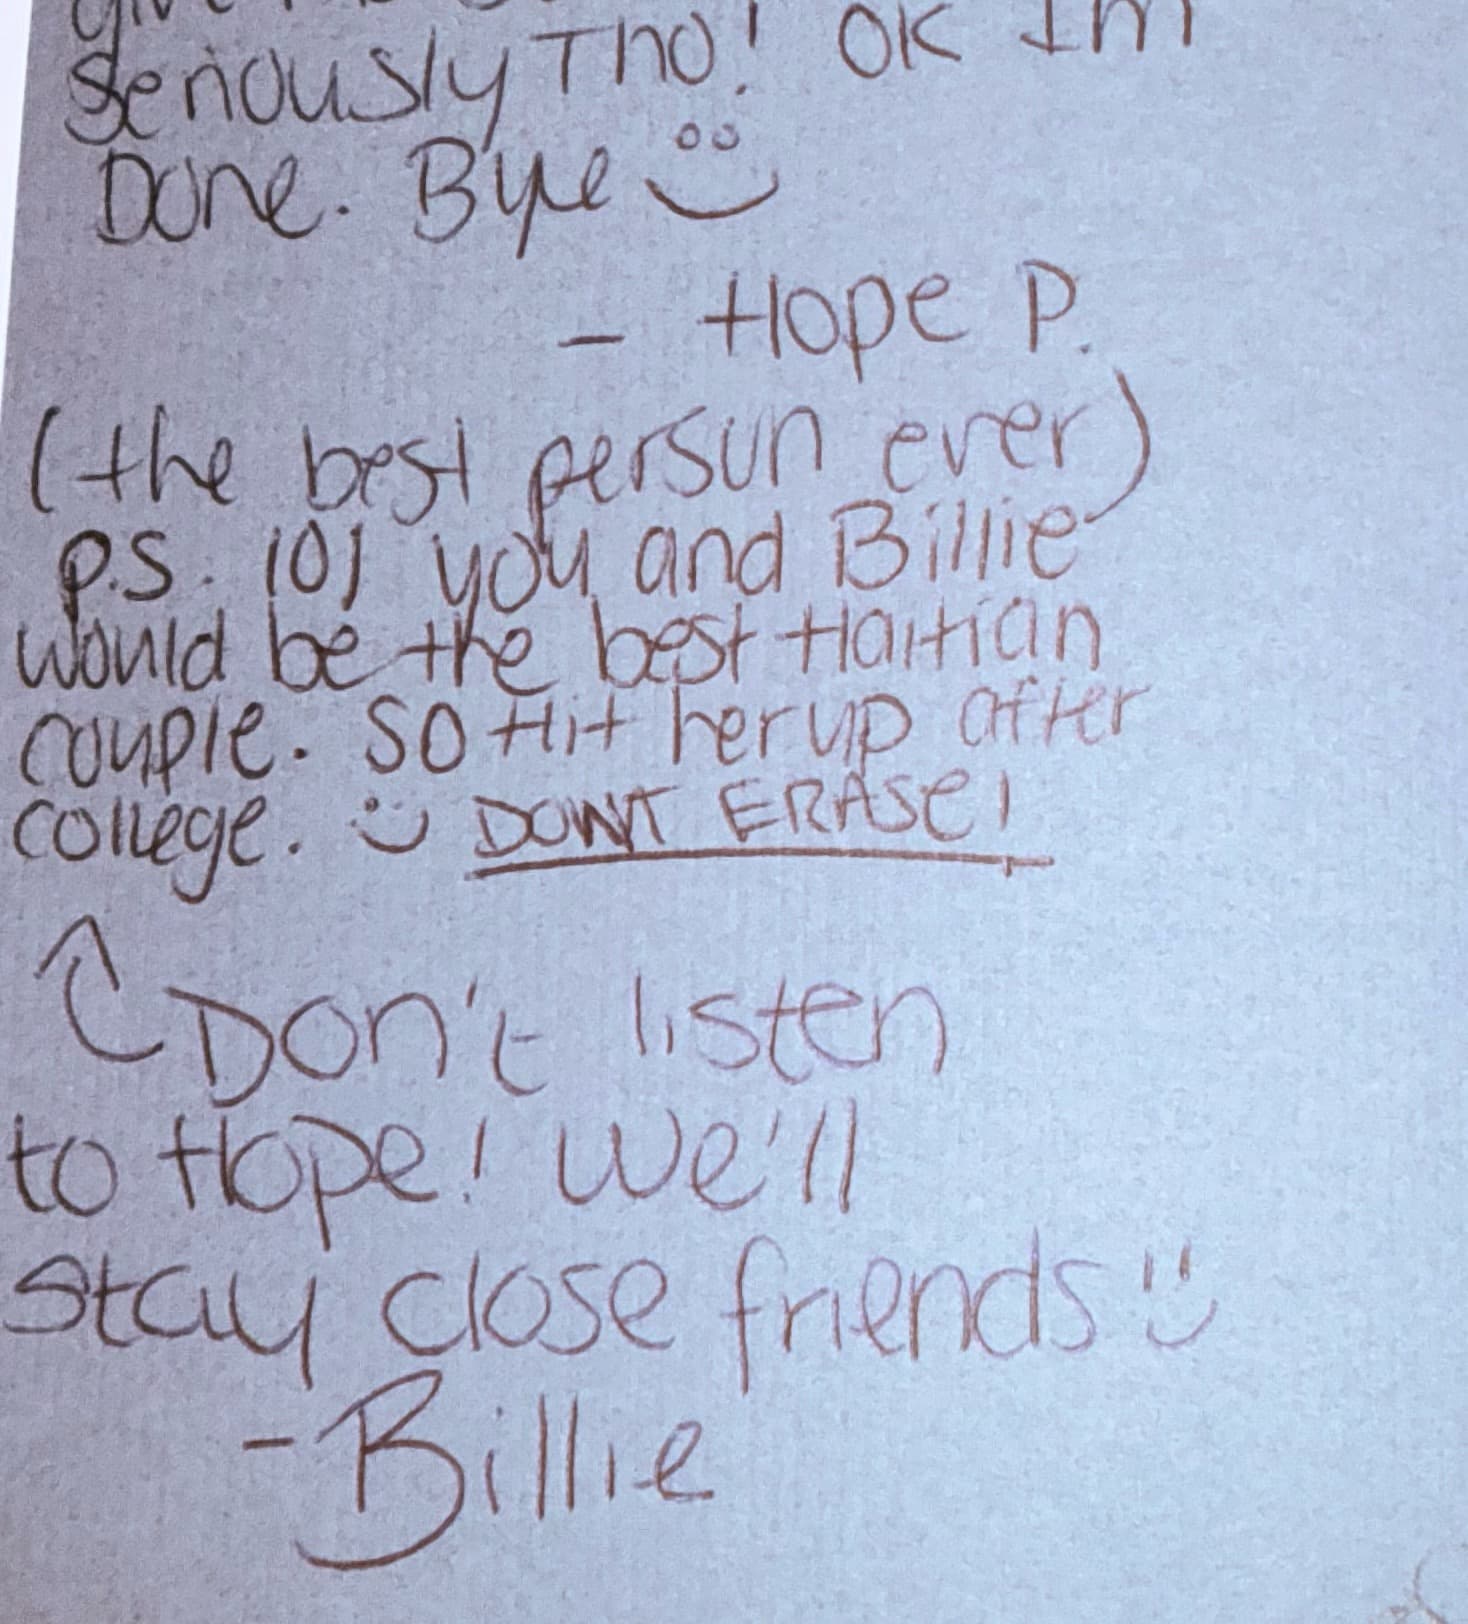 seriously Tho! OK Im
Done. Bye
- Hope P.
(the best persun ever)
p.s. lol you and Billie
would be the best Haitian
couple. SO Hit her up after
college. :) DONT ERASE!
Don't listen
to Hope! We'll
stay close friends :)
-Billie